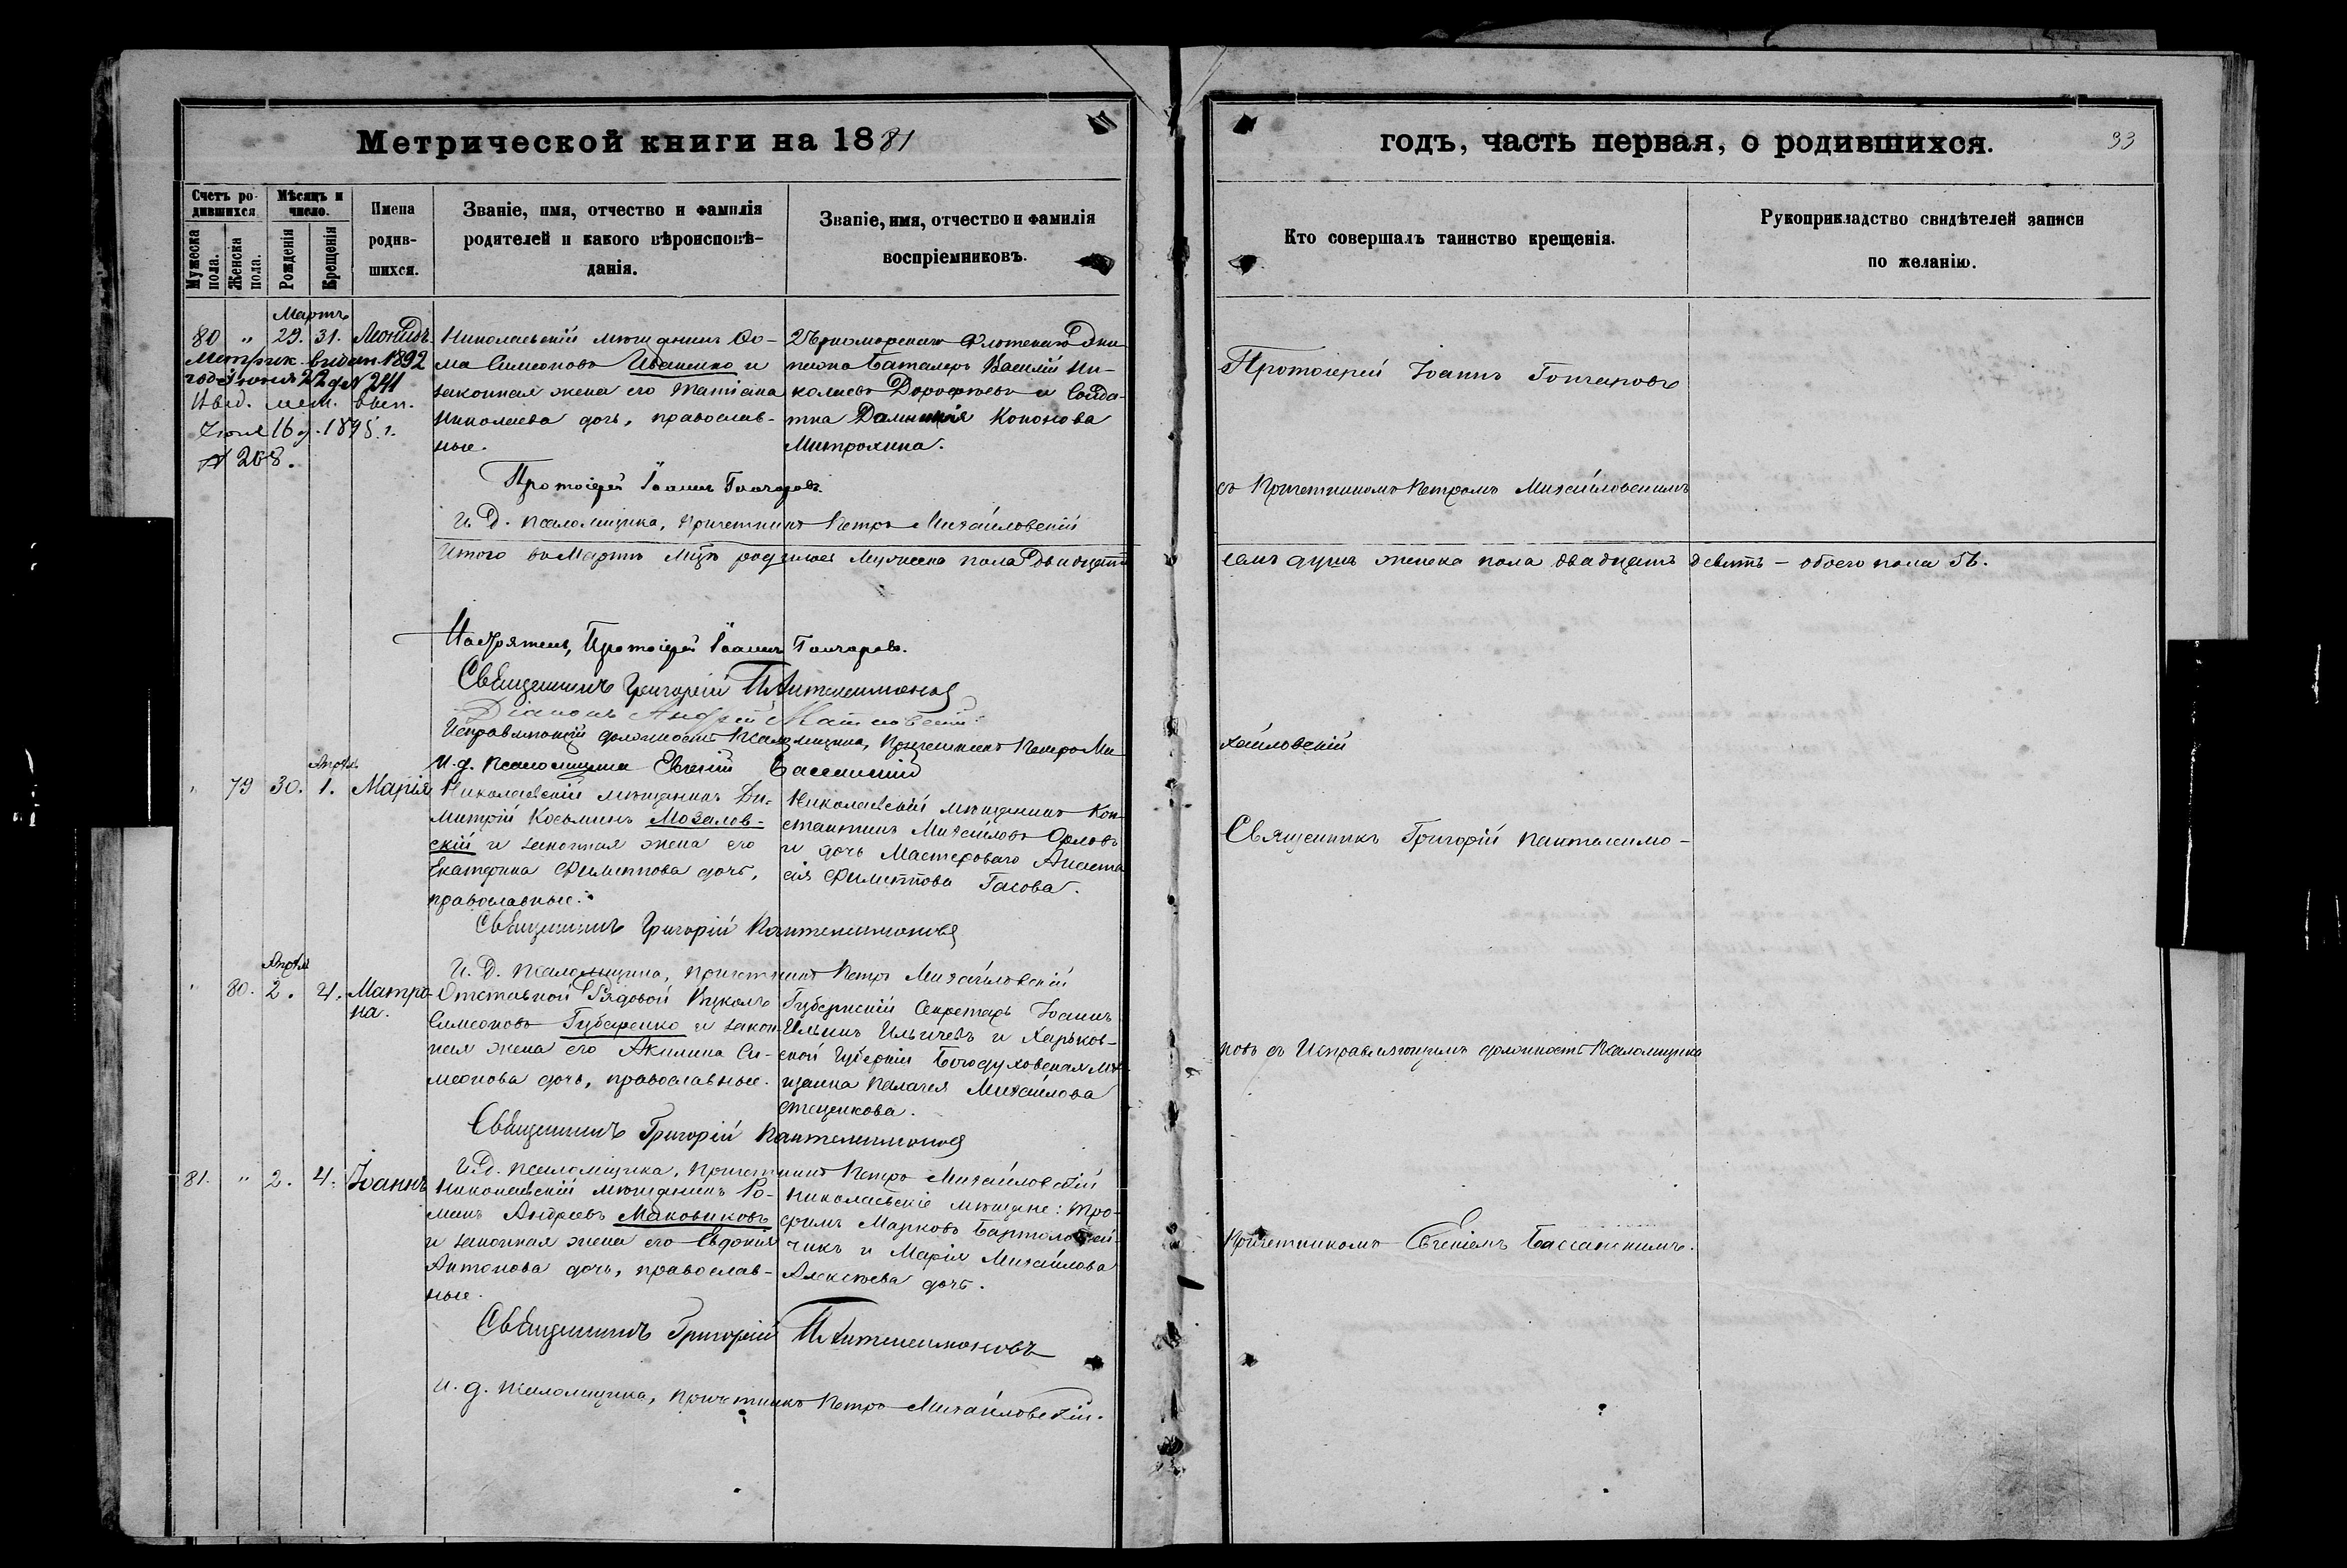 Метрической книги на 1881
годъ, часть первая, о родившихся.
33
Счетъ ро-
дившихся
Мѣсяцъ и
число.
Мужеска пола.
Женска пола.
Рожденія
Крещенія
Имена
родив-
шихся.
Званіе, имя, отчество и фамилія
родителей и какого вѣроисповѣ-
данія.
Званіе, имя, отчество и фамилія
воспріемниковъ.
Кто совершалъ таинство крещенія.
Рукоприкладство свидѣтелей записи
по желанію.
Мартъ
80 " 29. 31. Леонидъ.
Метрик. видан. 1892
года іюня 22 д № 241
мет. вып.
Іюля 16 д. 1895 г.
№ 268.
Николаевскій мѣщанинъ Ѳо-
ма Симеоновъ Иваненко и
законная жена его Татіана
Николаева дочь, православ-
ные.
Черноморскаго Флотскаго Эки-
пажа Баталеръ Василій Ни-
колаевъ Дорофѣевъ и Солда-
тка Кононова
Митрохина.
Протоіерей Іоаннъ Гончаровъ
Протоіерей Іоаннъ Гончаровъ.
И. Д. псаломщика, Причетникъ Петръ Михайловскій
съ Причетникомъ Петромъ Михайловскимъ
Итого въ Мартѣ Мцѣ родилось Мужеска пола Двадцать
семь душъ женска пола двадцать девять – обоего пола 56.
Настоятель, Протоіерей Іоаннъ Гончаровъ.
Священникъ Григорій Пантелеимоновъ
Діаконъ Андрей
Исправляющій должность Псаломщика, Причетникъ Петръ Ми-
хайловскій
И. д. Псаломщика Евгеній Бассанскій
Апрѣль
" 79 30. 1. Марія
Николаевскій мѣщанинъ Ди-
митрій Косьминъ Мозалев-
скій и законная жена его
Екатерина Филиппова дочь,
православные.
Николаевскій мѣщанинъ Кон-
стантинъ Михайловъ Орловъ
и дочь Мастероваго Анаста-
сія Филиппова Гасова.
Священникъ Григорій Пантелеимо-
Священникъ Григорій Пантелеимоновъ
И. Д. Псаломщика, Причетникъ Петръ Михайловскій
Апрѣль
" 80. 2. 4. Матро-
на.
Отставной Рядовой Вуколъ
Симеоновъ Губаренко и закон-
ная жена его Акилина Си-
меонова дочь, православные.
Губернскій Секретарь Іоаннъ
Ильинъ Ильичевъ и Харьков-
ской Губерніи Богодуховская мѣ-
щанка Пелагея Михайлова
Стеценкова.
новъ съ Исправляющимъ должность Псаломщика
Священникъ Григорій Пантелеимоновъ
И. Д. Псаломщика, Причетникъ Петръ Михайловскій
81. " 2. 4. Іоаннъ
Николаевскій мѣщанинъ Ро-
манъ Андреевъ Маковиковъ
и законная жена его Евдокія
Антонова дочь, православ-
ные.
Николаевскіе мѣщане: Тро-
фимъ Марковъ
чикъ и Марія Михайлова
Алексѣева дочь.
Причетникомъ Евгеніемъ Бассанскимъ.
Священникъ Григорій Пантелеимоновъ
И. д. Псаломщика, Причетникъ Петръ Михайловскій.